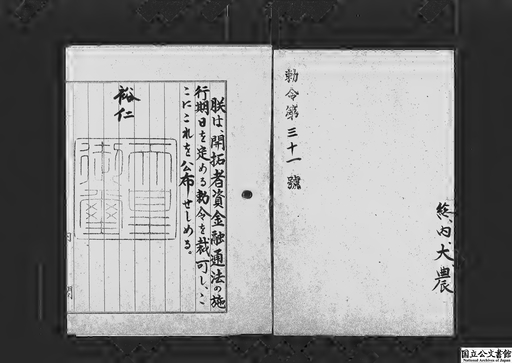 勅令第三十一號
総、内、大、農
朕は、開拓者資金融通法の施
行期日を定める勅令を裁可し、こ
こにこれを公布せしめる。
裕仁
天皇
御璽
内
閣
国立公文書館
National Archives of Japan